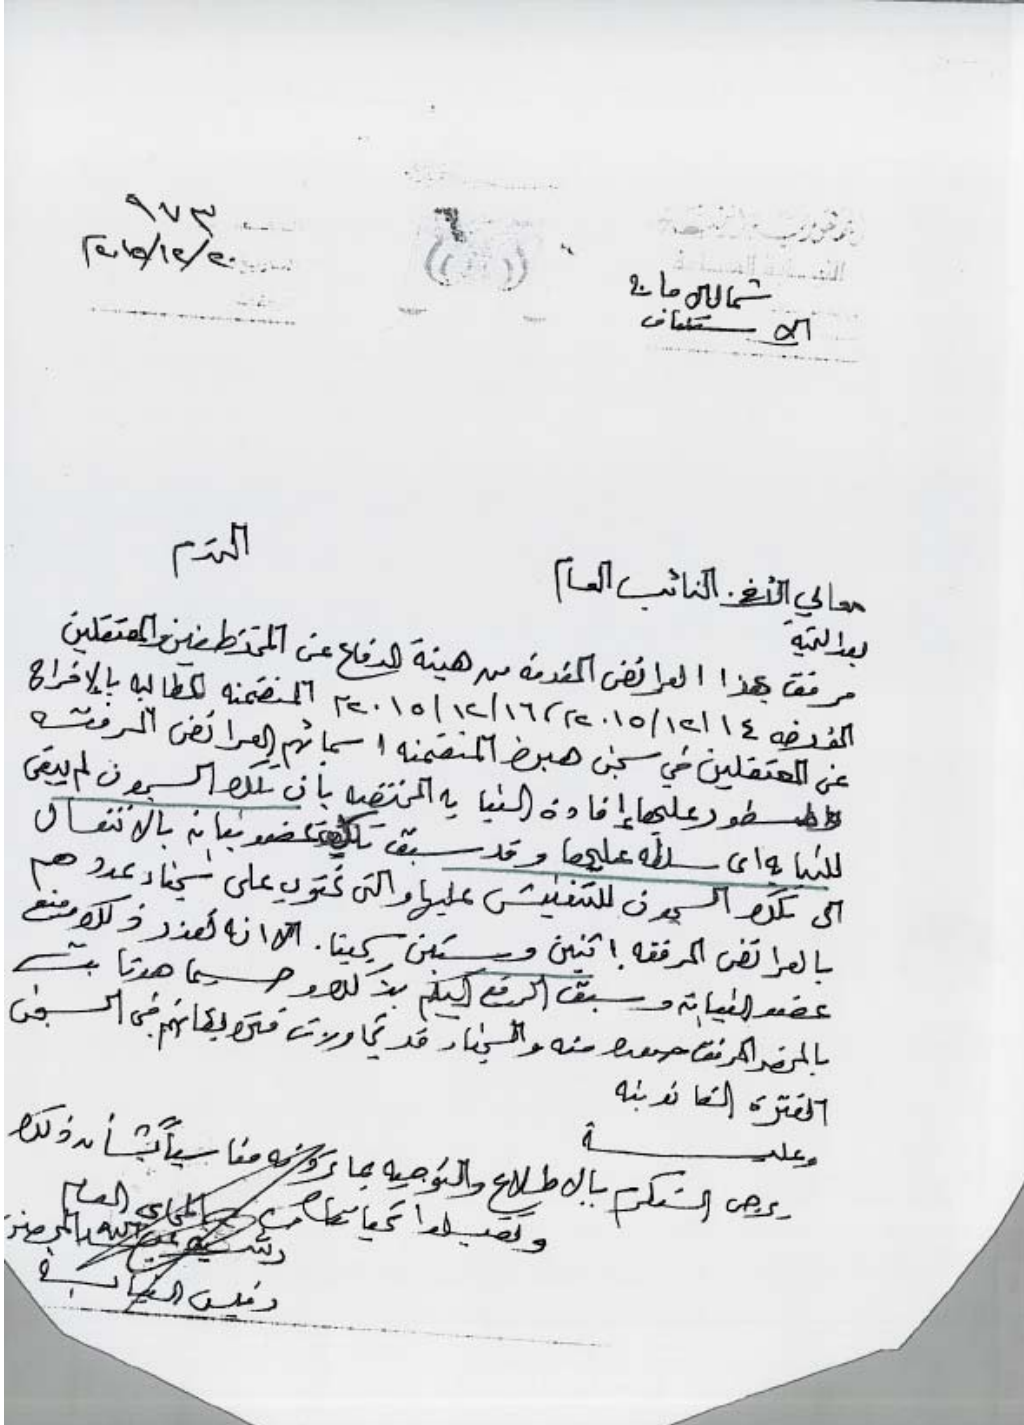 ٩٧٣
٢٠١٥/١٢/٢٠
شمال الامانة
الاستئناف
معالي الأخ. النائب العام المحترم
بعد التحية
مرفق بهذا العرائض المقدمة من هيئة الدفاع عن المختطفين والمعتقلين
المؤرخه ١٤/١٢/٢٠١٥، ١٦/١٢/٢٠١٥ المتضمنه المطالبه بالإفراج
عن المعتقلين في سجن هبره المتضمنه اسمائهم العرائض المرفقه
والمسطور عليها إفادة النيابه المختصه بأن تلك السجون لم يبقى
للنيابه اي سلطه عليها وقد سبق تكليف عضو نيابه بالانتقال
الى تلك السجون للتفتيش عليها والتي تحتوي على سجناء عددهم
بالعرائض المرفقه اثنين وستين سجينا. الا انه تعذر ذلك ومنع
عضو النيابه وسبق الرفع اليكم بذلك وحسبما هو ثابت
بالمحضر المرفق صوره منه والسجناء قد تجاوزت فتره بقائهم في السجن
الفترة القانونيه
وعليـــه
يرجى التكرم بالاطلاع والتوجيه بما ترونه مناسباً بشأن ذلك
وتفضلوا تحياتنا المحامي العام
رئيس النيابـــة